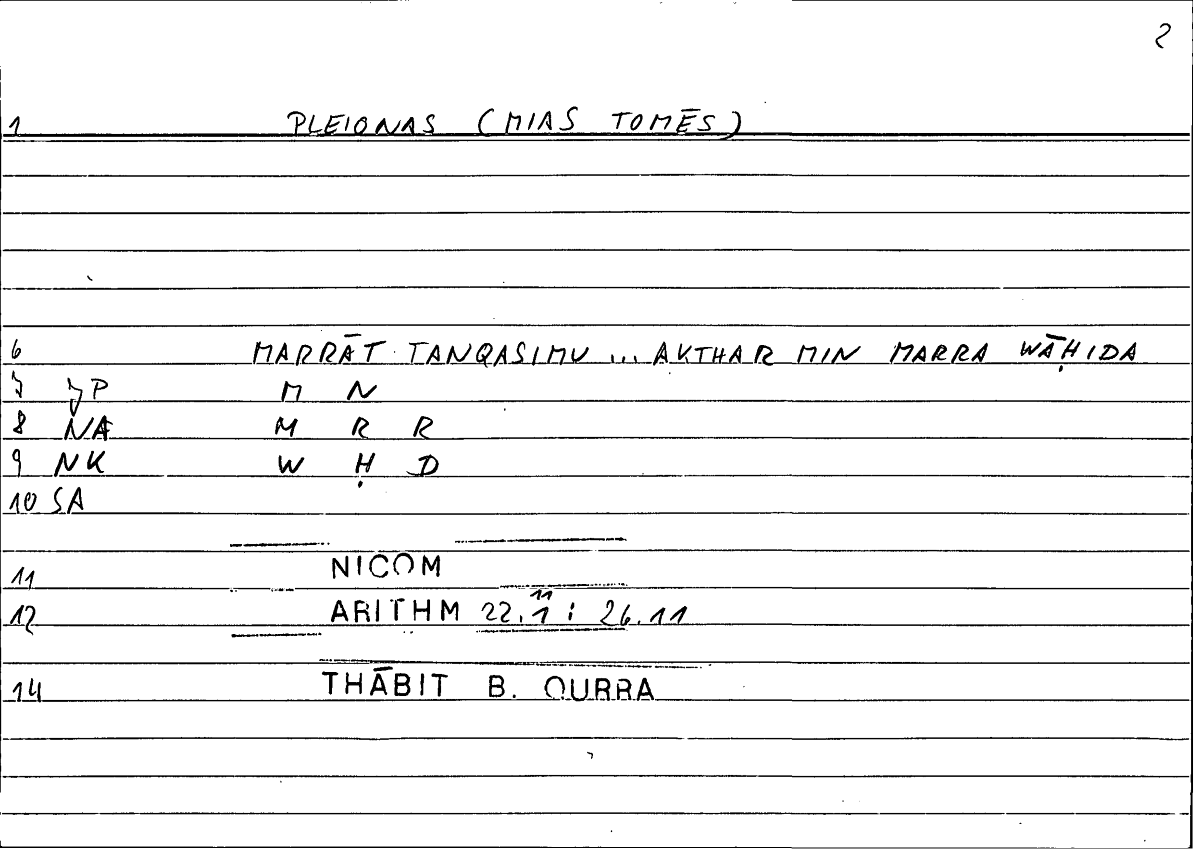 2
1 PLEIONAS (MIAS TOMĒS)
6 MARRĀT TANQASIMU ... AKTHAR MIN MARRA WĀḤIDA
7 JP M N
8 NA M R R
9 NK W Ḥ D
10 SA
11 NICOM
11
12 ARITHM 22.1 : 26.11
14 THĀBIT B. QURRA